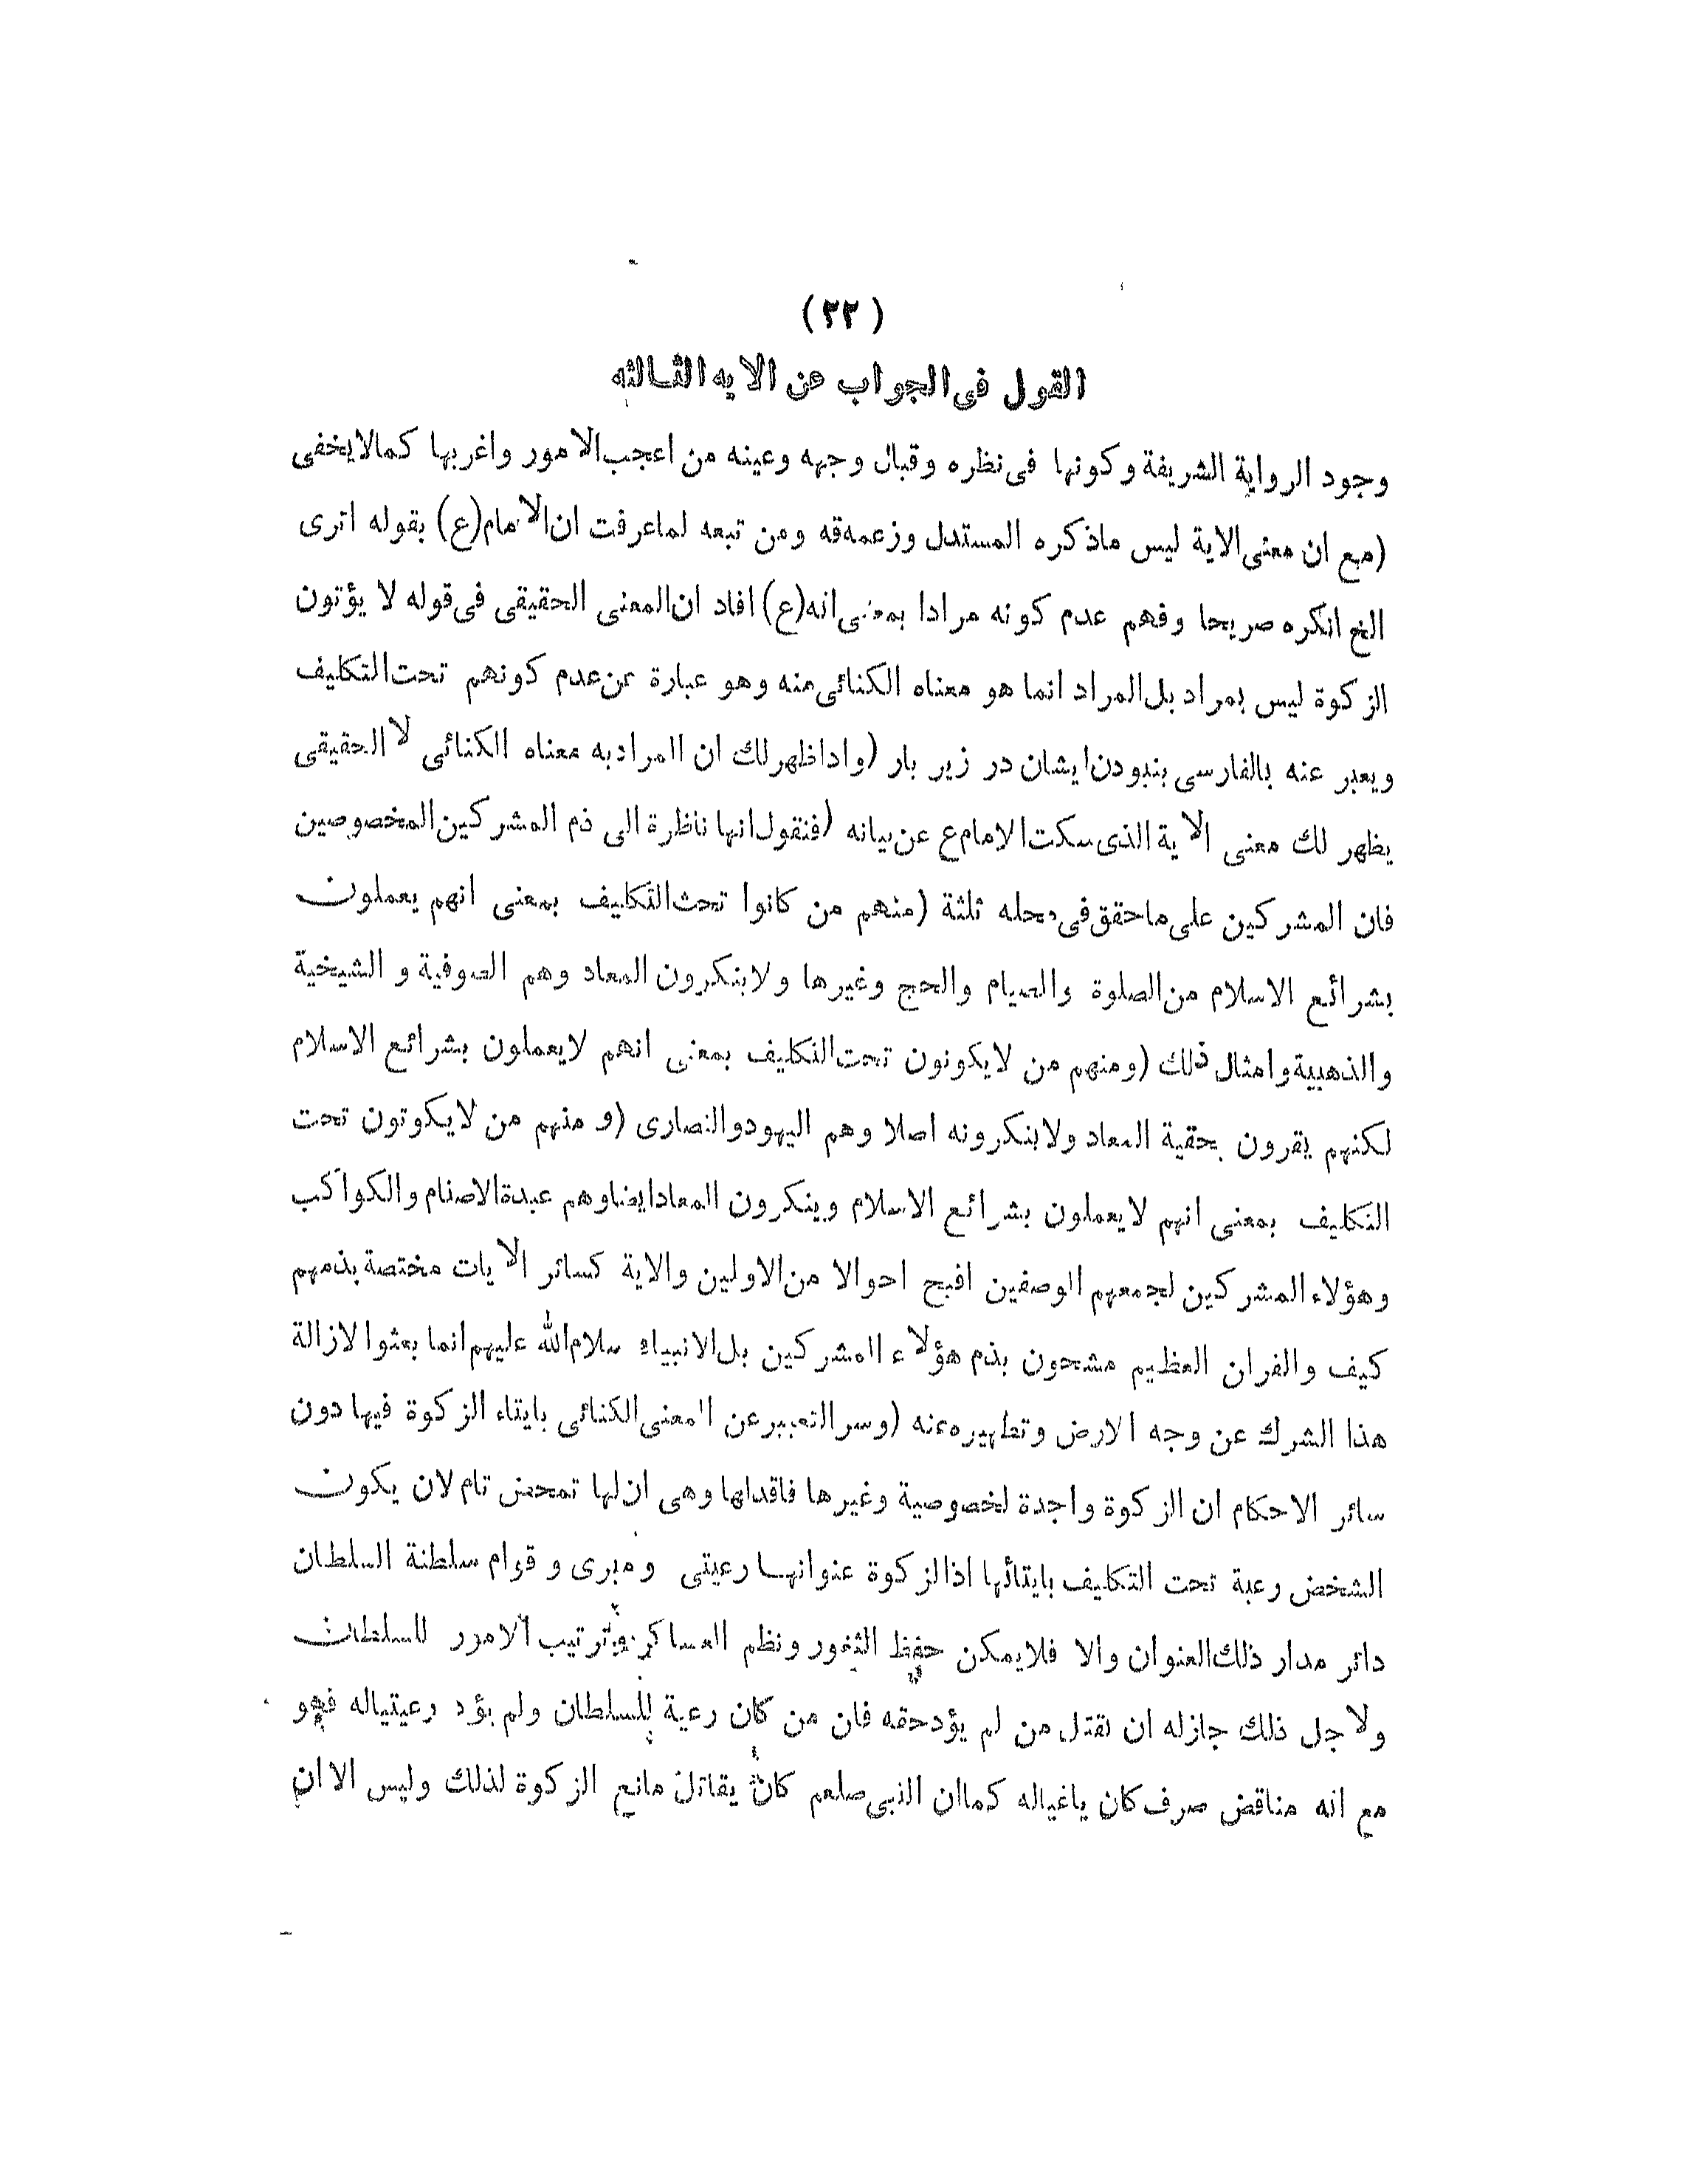 (٢٢)
القول في الجواب عن الايه الثالثه
وجود الرواية الشريفة وكونها فى نظره وقبال وجهه وعينه من اعجب الامور واغربها كمالا يخفى
(مع ان معنى الاية ليس ماذكره المستدل وزعمه قه ومن تبعه لماعرفت ان الامام(ع) بقوله اترى
الخ انكره صريحا وفهم عدم كونه مرادا بمعنى انه(ع) افاد ان المعنى الحقيقى فى قوله لا يؤتون
الزكوة ليس بمراد بل المراد انما هو معناه الكنائى منه وهو عبارة عن عدم كونهم تحت التكليف
ويعبر عنه بالفارسى بنبودن ايشان در زير بار (واذا ظهر لك ان المراد به معناه الكنائى لا الحقيقى
يظهر لك معنى الاية الذى سكت الامام ع عن بيانه (فنقول انها ناظرة الى ذم المشركين المخصوصين
فان المشركين على ماحقق فى محله ثلثة (منهم من كانوا تحت التكليف بمعنى انهم يعملون
بشرائع الاسلام من الصلوة والصيام والحج وغيرها ولا ينكرون المعاد وهم الصوفية و الشيخية
والذهبية وامثال ذلك (ومنهم من لايكونون تحت التكليف بمعنى انهم لايعملون بشرائع الاسلام
لكنهم يقرون بحقية المعاد ولا ينكرونه اصلا وهم اليهود والنصارى (و منهم من لايكوتون تحت
التكليف بمعنى انهم لايعملون بشرائع الاسلام وينكرون المعاد ايضا وهم عبدة الاصنام والكواكب
وهؤلاء المشركين لجمعهم الوصفين اقبح احوالا من الاولين والاية كسائر الايات مختصة بذمهم
كيف والقران العظيم مشحون بذم هؤلاء المشركين بل الانبياء سلام الله عليهم انما بعثوا لازالة
هذا الشرك عن وجه الارض وتطهيره عنه (وسر التعبير عن المعنى الكنائى بايتاء الزكوة فيها دون
سائر الاحكام ان الزكوة واجدة لخصوصية وغيرها فاقدلها وهى ان لها تمحض تام لان يكون
الشخص رعية تحت التكليف بايتائها اذا الزكوة عنوانها رعيتى وميرى و قوام سلطنة السلطان
دائر مدار ذلك العنوان والا فلايمكن حفظ الثغور ونظم العساكر وترتيب الامور للسلطان
ولاجل ذلك جازله ان تقتل من لم يؤدحقه فان من كان رعية للسلطان ولم يؤد رعيتياله فهو
مع انه مناقض صرف كان ياغياله كماان النبى صلعم كان يقاتل مانع الزكوة لذلك وليس الا ان